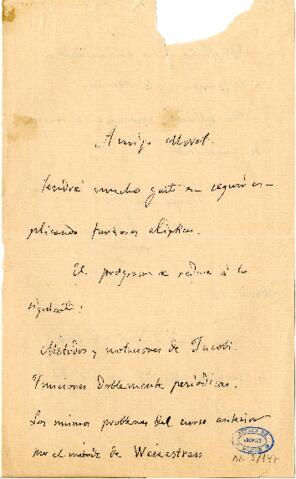 Amigo Morel.
Tendré mucho gusto en seguir ex-
plicando funciones elípticas.
El programa se reduce á lo
siguiente:
Métodos y notaciones de Jacobi.
Funciones doblemente periódicas.
Los mismos problemas del curso anterior
por el método de Weierstrass